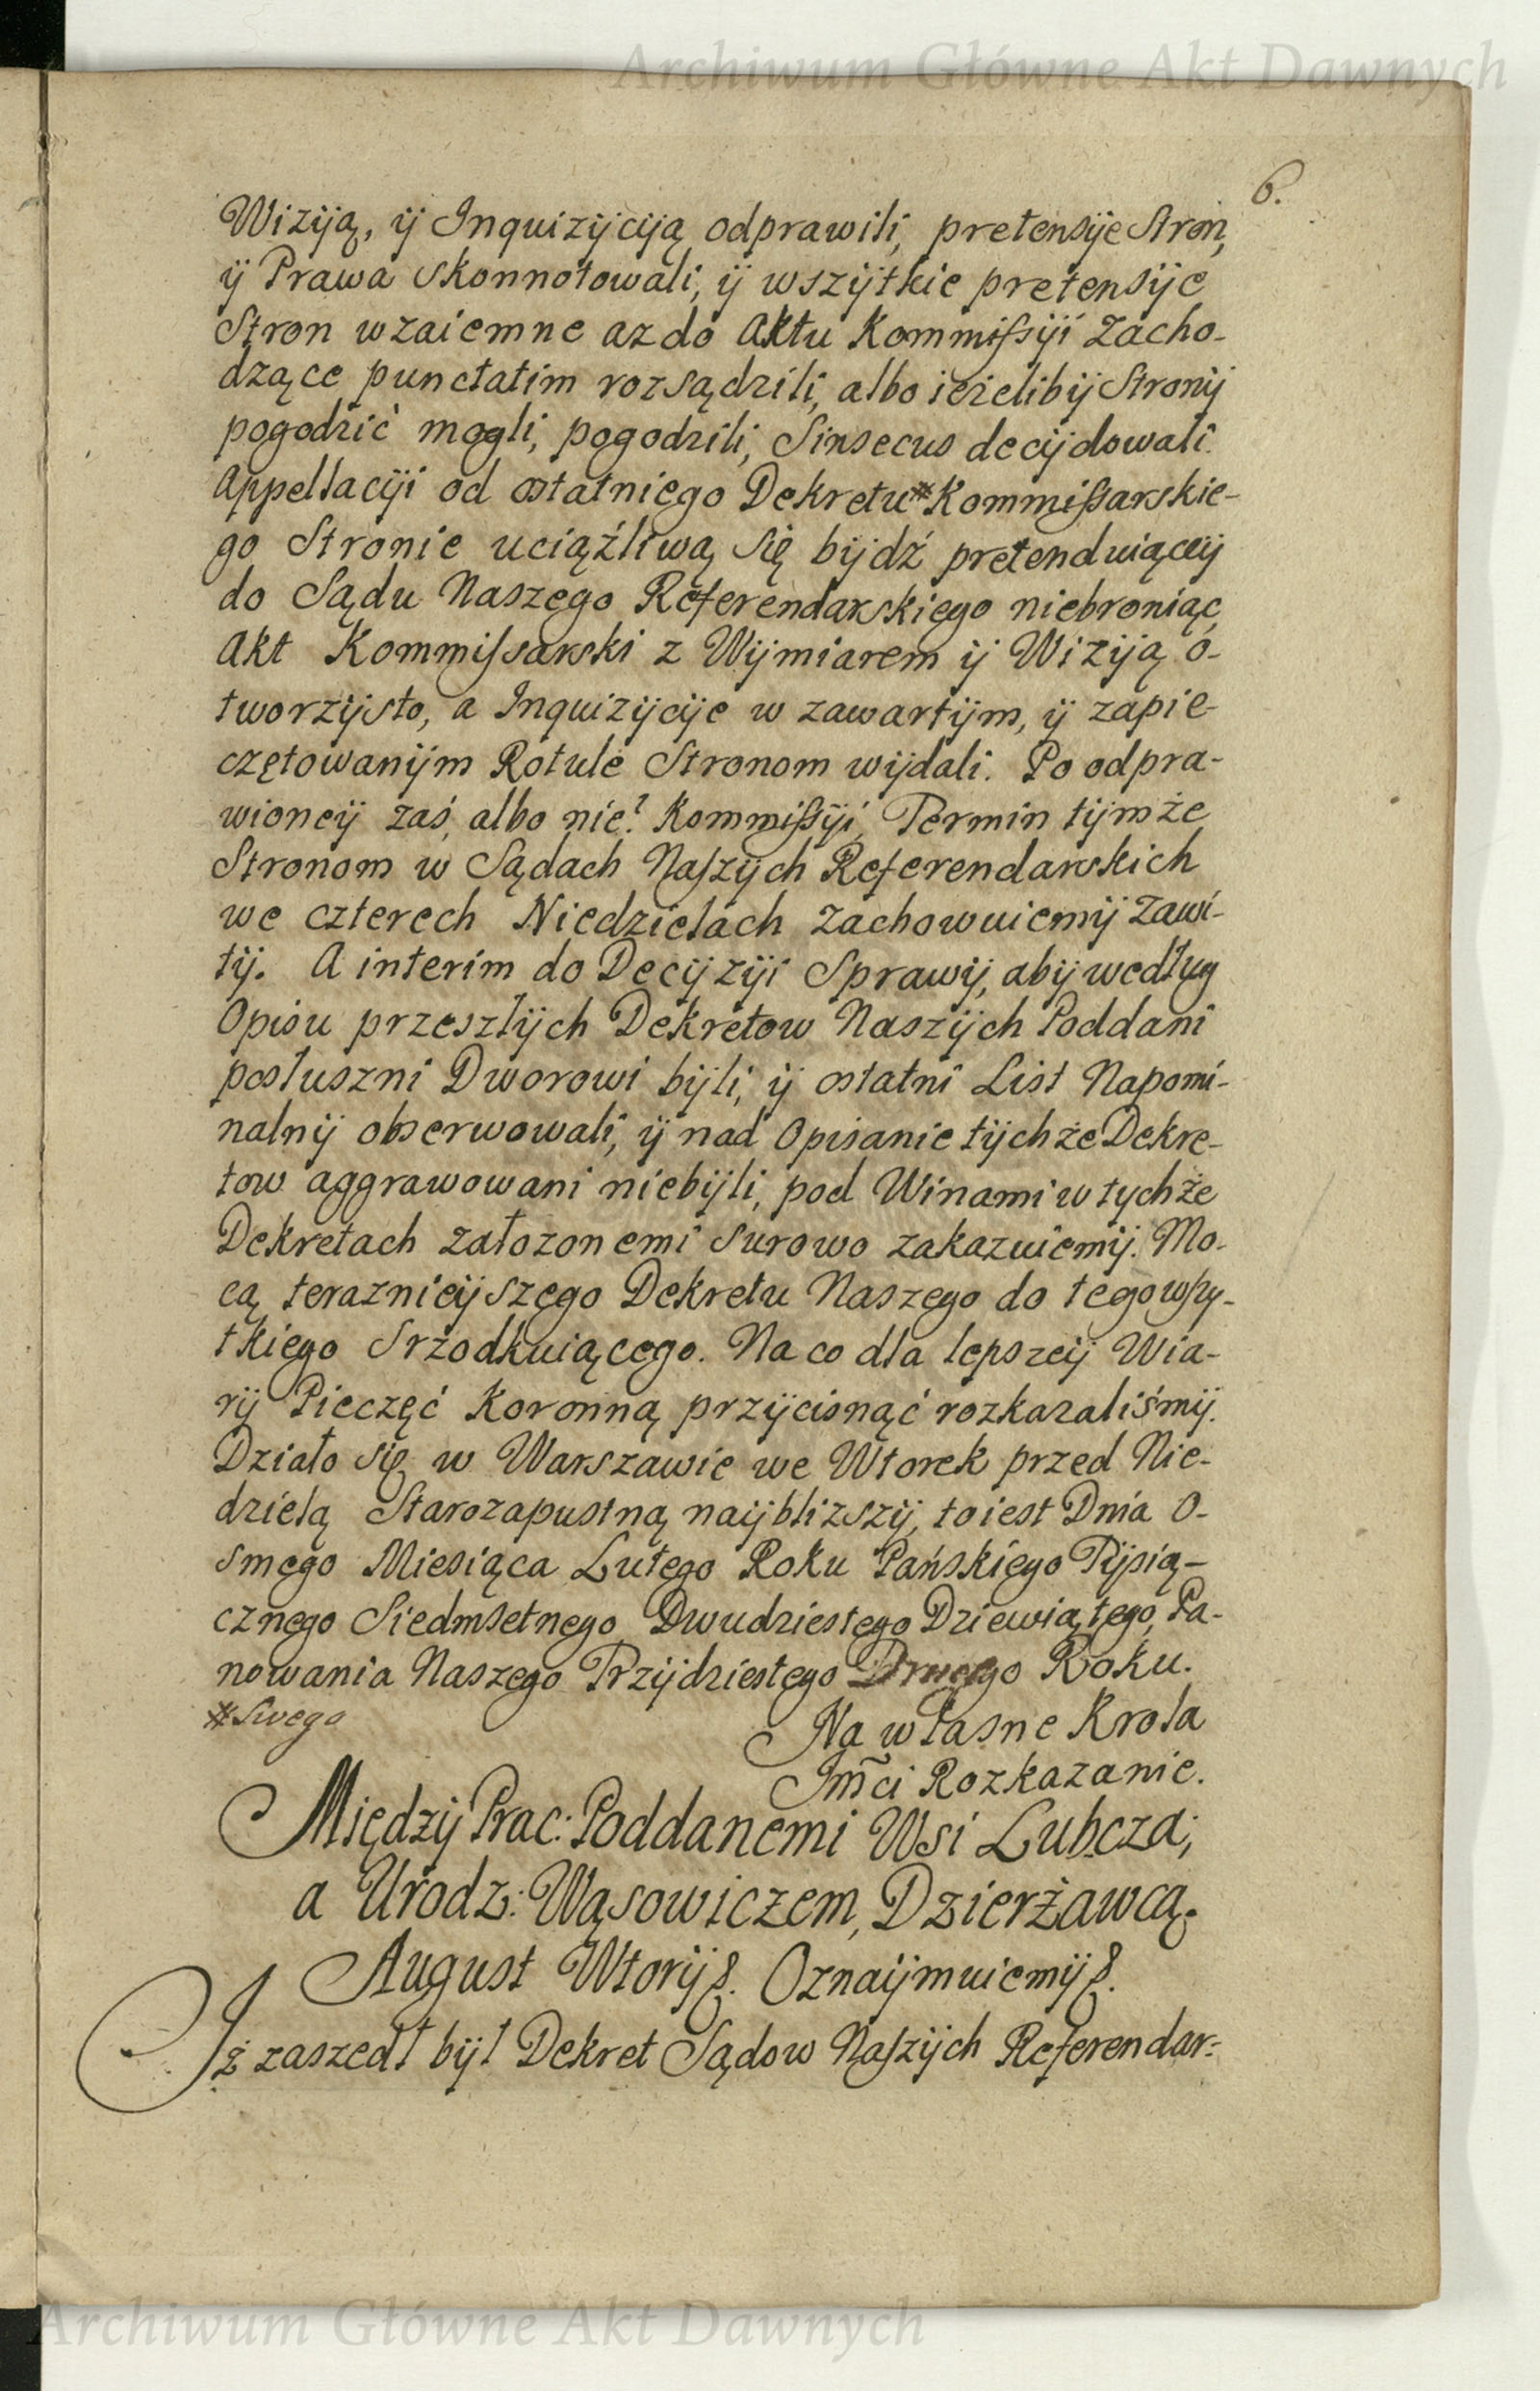 Archiwum Główne Akt Dawnych
6.
Wiziją, ij Inquizijciją odprawili, pretensije Stron,
ij Prawa skonnotowali, ij wszijtkie pretensije
Stron wzaiemne az do Aktu Kommissiji zacho-
dzące punctatim rozsądzili, albo ieżelibij Stronij
pogodzić mogli, pogodzili, Sinsecus decijdowali.
Appellaciji od ostatniego Dekretu * Kommissarskie-
go Stronie uciążliwą się bijdź pretenduiąceij
do Sądu Naszego Referendarskiego niebroniąc,
Akt Kommissarski z Wijmiarem ij Wiziją o-
tworzijsto, a Inquizijcije w zawartijm, ij zapie-
czętowanijm Rotule Stronom wijdali. Po odpra-
wioneij zaś, albo nie? Kommissiji, Termin tijmże
Stronom w Sądach Naszijch Referendarskich
we czterech Niedzielach zachowuiemij zawi-
tij. A interim do Decijziji Sprawij, abij według
Opisu przeszłijch Dekretow Naszijch Poddani
posłuszni Dworowi bijli, ij ostatni List Napomi-
nalnij obserwowali, ij nad Opisanie tijchże Dekre-
tow aggrawowani niebijli, pod Winami w tychże
Dekretach założonemi surowo zakazuiemij. Mo-
cą teraznieijszego Dekretu Naszego do tego wszy-
tkiego srzodkuiącego. Na co dla lepszeij Wia-
rij Pieczęć Koronną przijcisnąć rozkazaliśmij.
Działo się w Warszawie we Wtorek przed Nie-
dzielą Starozapustną naijblizszij, to iest Dnia O-
smego Miesiąca Lutego Roku Pańskiego Tijsią-
cznego Siedmsetnego Dwudziestego Dziewiątego, Pa-
nowania Naszego Trzijdziestego Drugiego Roku.
* Swego
Na własne Krola
Jm̃ci Rozkazanie.
Międzij Prac: Poddanemi Wsi Lubcza;
a Urodz: Wąsowiczem, Dzierżawcą.
August Wtorij &. Oznaijmuiemij &.
Iż zaszedł bijł Dekret Sądow Naszijch Referendar:
Archiwum Główne Akt Dawnych